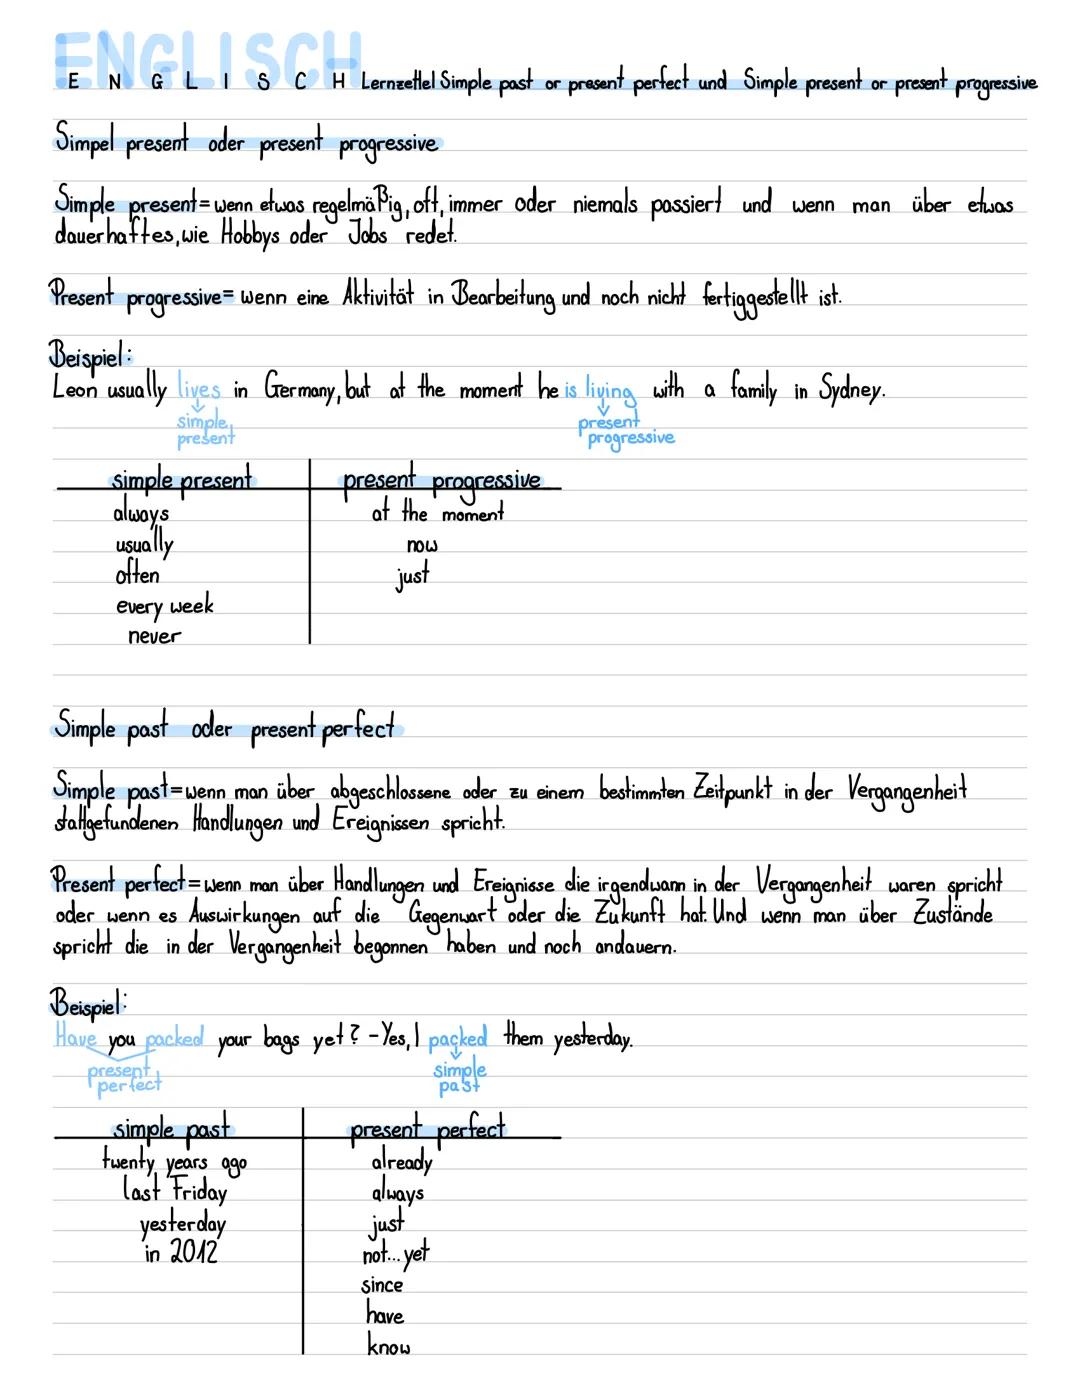 ENGLISCH
E N G L I S C H Lernzettel Simple past or present perfect und Simple present or present progressive
Simpel present oder present progressive
Simple present = wenn etwas regelmäßig, oft, immer oder niemals passiert und wenn man über etwas
dauerhaftes, wie Hobbys oder Jobs redet.
Present progressive = wenn eine Aktivität in Bearbeitung und noch nicht fertiggestellt ist.
Beispiel:
Leon usually lives in Germany, but at the moment he is living with a family in Sydney.
simple present
present progressive
simple present | present progressive
always | at the moment
usually | now
often | just
every week
never
Simple past oder present perfect
Simple past = wenn man über abgeschlossene oder zu einem bestimmten Zeitpunkt in der Vergangenheit
stattgefundenen Handlungen und Ereignissen spricht.
Present perfect = wenn man über Handlungen und Ereignisse die irgendwann in der Vergangenheit waren spricht
oder wenn es Auswirkungen auf die Gegenwart oder die Zukunft hat. Und wenn man über Zustände
spricht die in der Vergangenheit begonnen haben und noch andauern.
Beispiel:
Have you packed your bags yet? - Yes, I packed them yesterday.
present perfect
simple past
simple past | present perfect
twenty years ago | already
last Friday | always
yesterday | just
in 2012 | not... yet
since
have
know